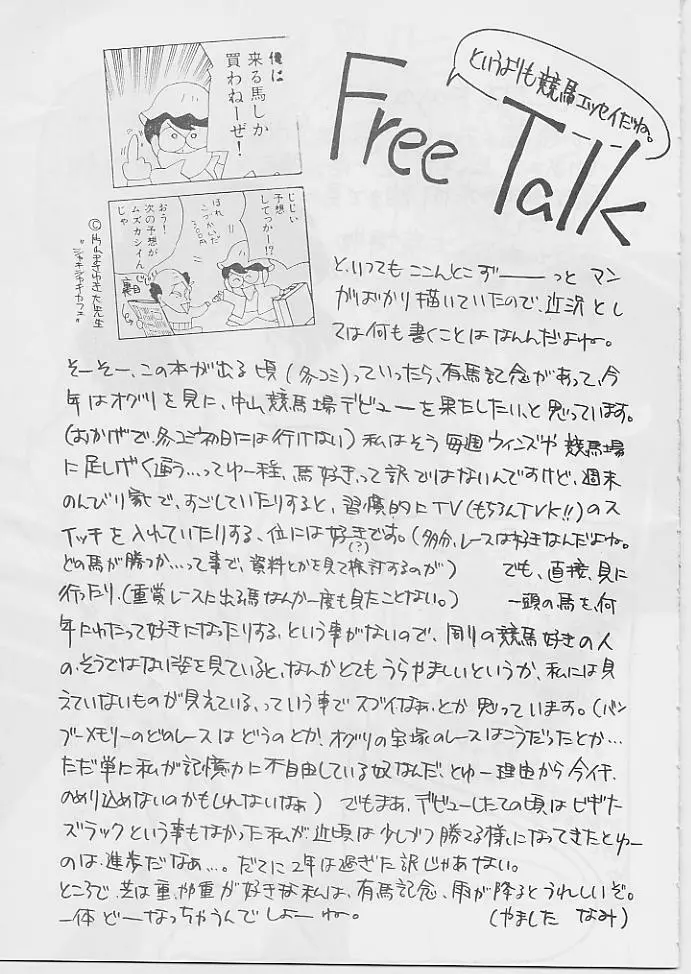 というよりも競馬エッセイだね。
Free Talk
俺に
来る馬しか
買わねーぜ!
じじい
予想
してっかー!?
ほれ
こづかいだ
300円
おう!
次の予想が
ムズカシイん
じゃ
裏目
©片山まさゆき大先生
"ジャキジャキカフェ"
と、いってもここんとこずーーっとマン
がばかり描いていたので、近況とし
ては何も書くことはなんんだよね。
そーそー、この本が出る頃(冬コミ)っていったら、有馬記念があって、今
年はオグリを見に、中山競馬場デビューを果たしたい、と思っています。
(おかげで、冬コミ初日には行けない)私はそう毎週ウィンズや競馬場
に足しげく通う…ってゆー程、馬好きって訳ではないんですけど、週末
のんびり家で、すごしていたりすると、習慣的にTV(もちろんTVK!!)のス
イッチを入れていたりする、位には好きです。(多分、レースは好きなんだよね。
(?)
どの馬が勝つか…って事で、資料とかを見て検討するのが) でも、直接、見に
行ったり、(重賞レースに出る馬なんか一度も見たことない。) 一頭の馬を、何
年にわたって好きになったりする、という事がないので、周りの競馬好きの人
の、そうではない姿を見ていると、なんかとてもうらやましいというか、私には見
えていないものが見えている、っていう事でスゴイなぁ、とか思っています。(バン
ブーメモリーのどのレースはどうのとか、オグリの宝塚のレースはこうだったとか…
ただ単に私が記憶力に不自由している奴なんだ、とゆー理由から今イチ、
のめり込めないのかもしれないなぁ) でもまぁ、デビューしたての頃はビギナ
ズラックという事もなかった私が近頃は少しづつ勝てる様になってきたとゆー
のは、進歩だなぁ…。だてに2年は過ぎた訳じゃあない。
ところで、芝は重、やや重が好きな私は、有馬記念、雨が降るとうれしいぞ。
一体どーなっちゃうんでしょーね。 (やました なみ)